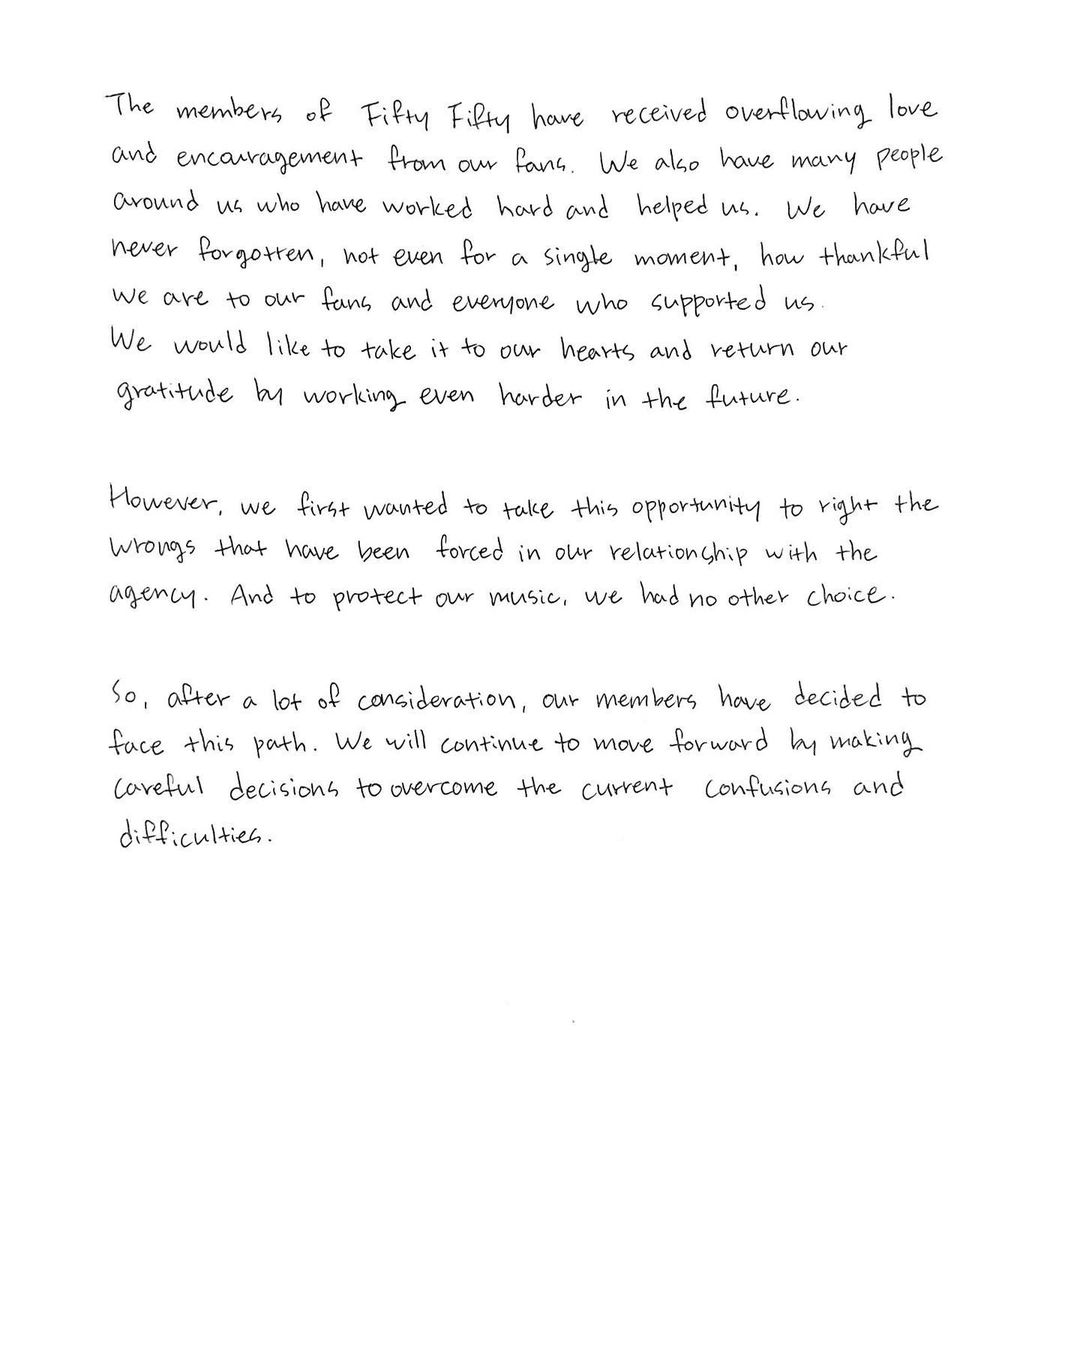 The members of Fifty Fifty have received overflowing love
and encouragement from our fans. We also have many people
around us who have worked hard and helped us. We have
never forgotten, not even for a single moment, how thankful
we are to our fans and everyone who supported us.
We would like to take it to our hearts and return our
gratitude by working even harder in the future.
However, we first wanted to take this opportunity to right the
wrongs that have been forced in our relationship with the
agency. And to protect our music, we had no other choice.
So, after a lot of consideration, our members have decided to
face this path. We will continue to move forward by making
careful decisions to overcome the current confusions and
difficulties.